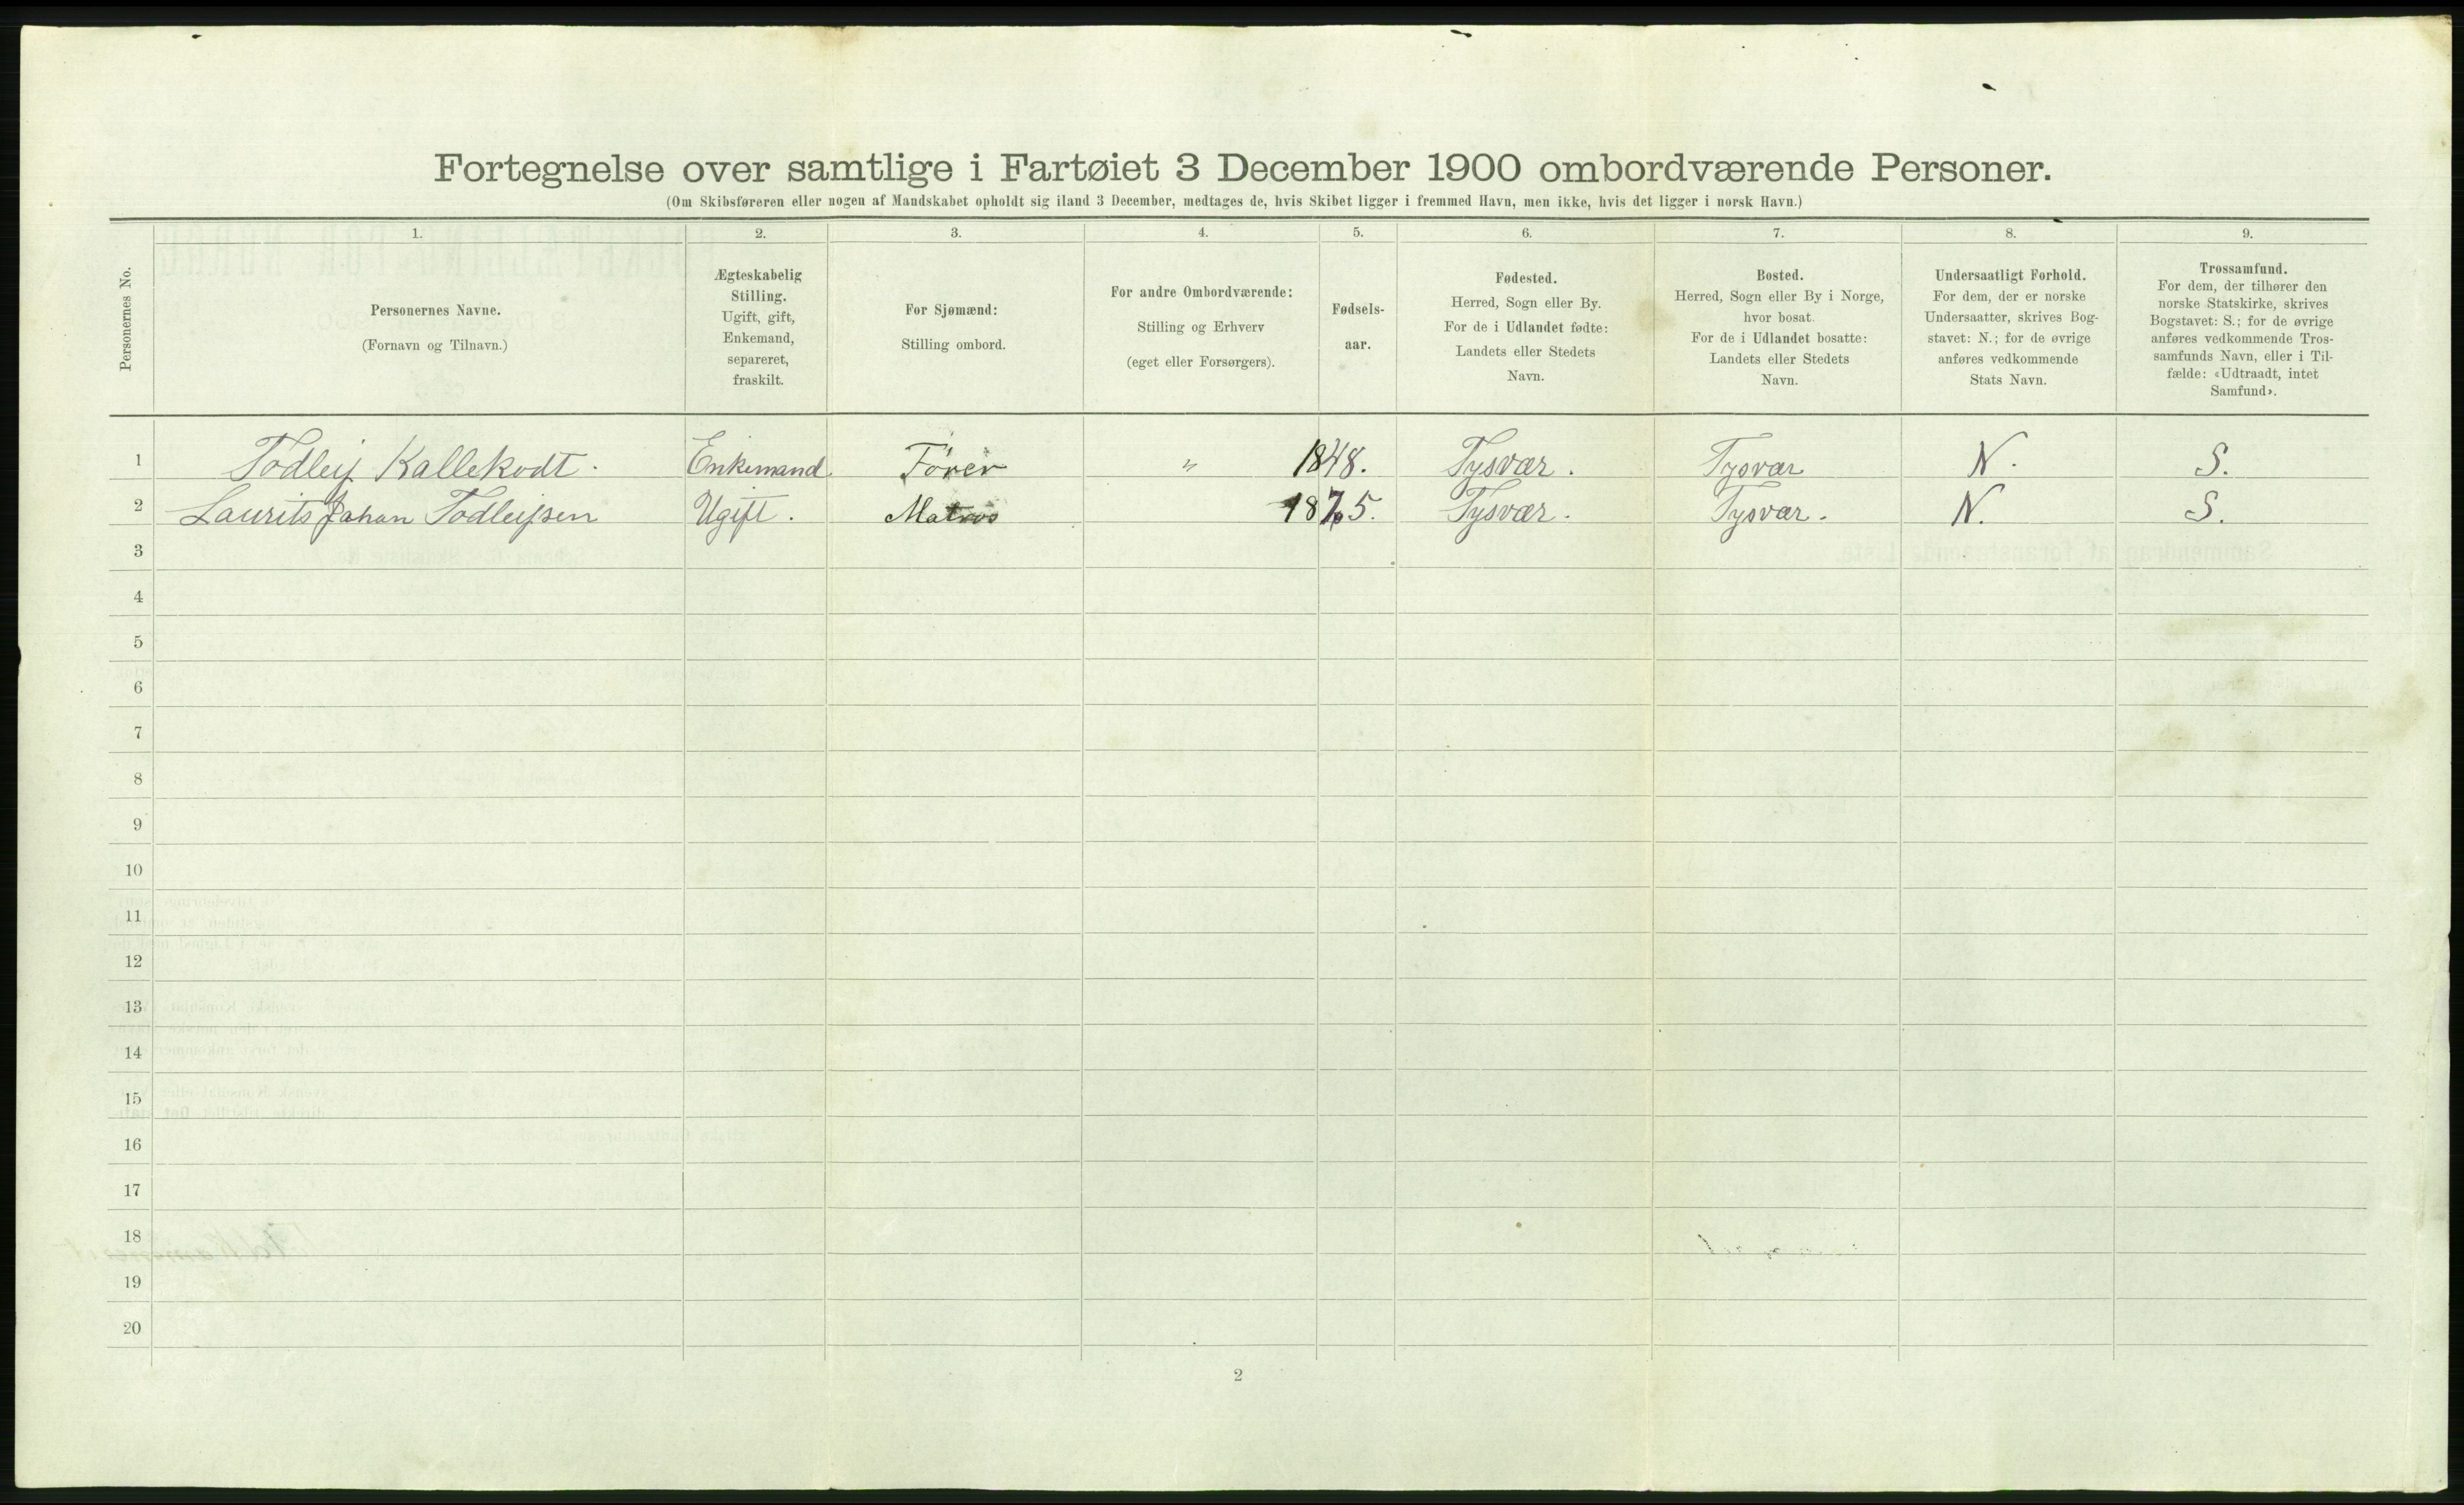 Fortegnelse over samtlige i Fartøiet 3 December 1900 ombordværende Personer.
(Om Skibsføreren eller nogen af Mandskabet opholdt sig iland 3 December, medtages de, hvis Skibet ligger i fremmed Havn, men ikke, hvis det ligger i norsk Havn.)
Personernes No.
1. 2. 3. 4. 5. 6. 7. 8. 9.
Personernes Navne.
(Fornavn og Tilnavn.)
Ægteskabelig
Stilling.
Ugift, gift,
Enkemand,
separeret,
fraskilt.
For Sjømænd:
Stilling ombord.
For andre Ombordværende:
Stilling og Erhverv
(eget eller Forsørgers).
Fødsels-
aar.
Fødested.
Herred, Sogn eller By.
For de i Udlandet fødte:
Landets eller Stedets
Navn.
Bosted.
Herred, Sogn eller By i Norge,
hvor bosat.
For de i Udlandet bosatte:
Landets eller Stedets
Navn.
Undersaatligt Forhold.
For dem, der er norske
Undersaatter, skrives Bog-
stavet: N.; for de øvrige
anføres vedkommende
Stats Navn.
Trossamfund.
For dem, der tilhører den
norske Statskirke, skrives
Bogstavet: S.; for de øvrige
anføres vedkommende Tros-
samfunds Navn, eller i Til-
fælde: «Udtraadt, intet
Samfund».
1 Todleif Kallekodt. Enkemand Fører " 1848. Tysvær. Tysvær N. S.
2 Laurits Johan Todleifsen Ugift. Matros 1875. Tysvær. Tysvær. N. S.
3
4
5
6
7
8
9
10
11
12
13
14
15
16
17
18
19
20
2